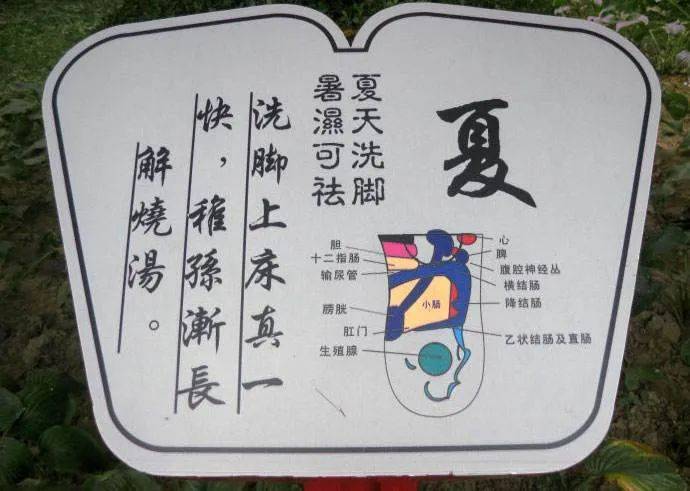 夏
夏天洗脚
暑濕可祛
洗脚上床真一
快，稚孫漸長
解燒湯。
胆
十二指肠
输尿管
膀胱
肛门
生殖腺
小肠
心
脾
腹腔神经丛
横结肠
降结肠
乙状结肠及直肠